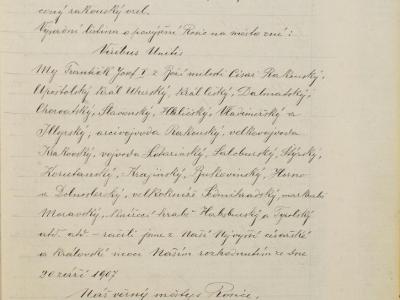 císařský rakouský orel.
Vyprání listina o povýšení Rosic na město zní:
Viribus Unitis
My František Josef I. z Boží milosti Císař Rakouský,
Apoštolský Král Uherský, Král Český, Dalmatský,
Chorvatský, Slavonský, Haličský, Vladiměřský a
Illyrský, arcivojvoda Rakouský, velkovojvoda
Krakovský, vojvoda Lotarinský, Salcburský, Štýrský,
Korutanský, Krajinský, Bukovinský, Horno
a Dolnoslezský, velkokníže Sedmihradský, markrabě
Moravský, hrabě Habsburský a Tyrolský
atd. atd. ráčili jsme z Naší Nejvyšší císařské
a královské moci Naším rozhodnutím ze dne
20 září 1907
Náš věrný městys Rosice,